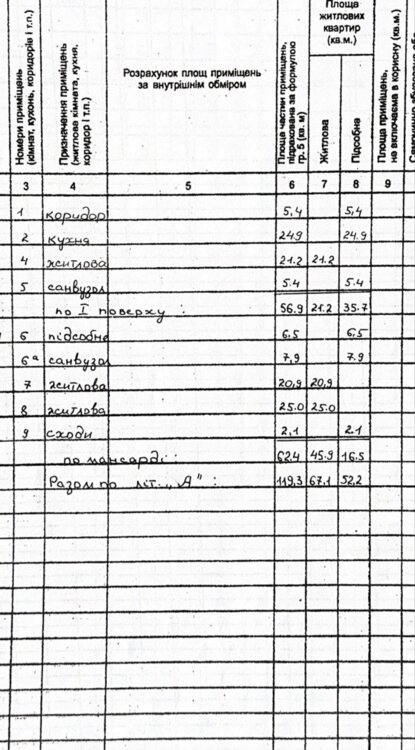 Номери приміщень (кімнат, кухонь, коридорів і т.п.)
Призначення приміщень (житлова кімната, кухня, коридор і т.п.)
Розрахунок площ приміщень за внутрішнім обміром
Площа частин приміщень, підрахована за формулою гр. 5 (кв. м)
Площа житлових квартир (кв.м.)
Житлова
Підсобна
Площа приміщень, не включаєма в корисну (кв.м.)
3 4 5 6 7 8 9
1 коридор 5,4 5,4
2 кухня 24,9 24.9
4 житлова 21.2 21.2
5 санвузол 5.4 5.4
по I поверху : 56,9 21.2 35.7
6 підсобне 6.5 6,5
6ª санвузол 7,9 7.9
7 житлова 20,9 20,9
8 житлова 25.0 25.0
9 сходи 2,1 2.1
по мансарді : 62.4 45.9 16.5
Разом по літ. „А" : 119,3 67,1 52,2